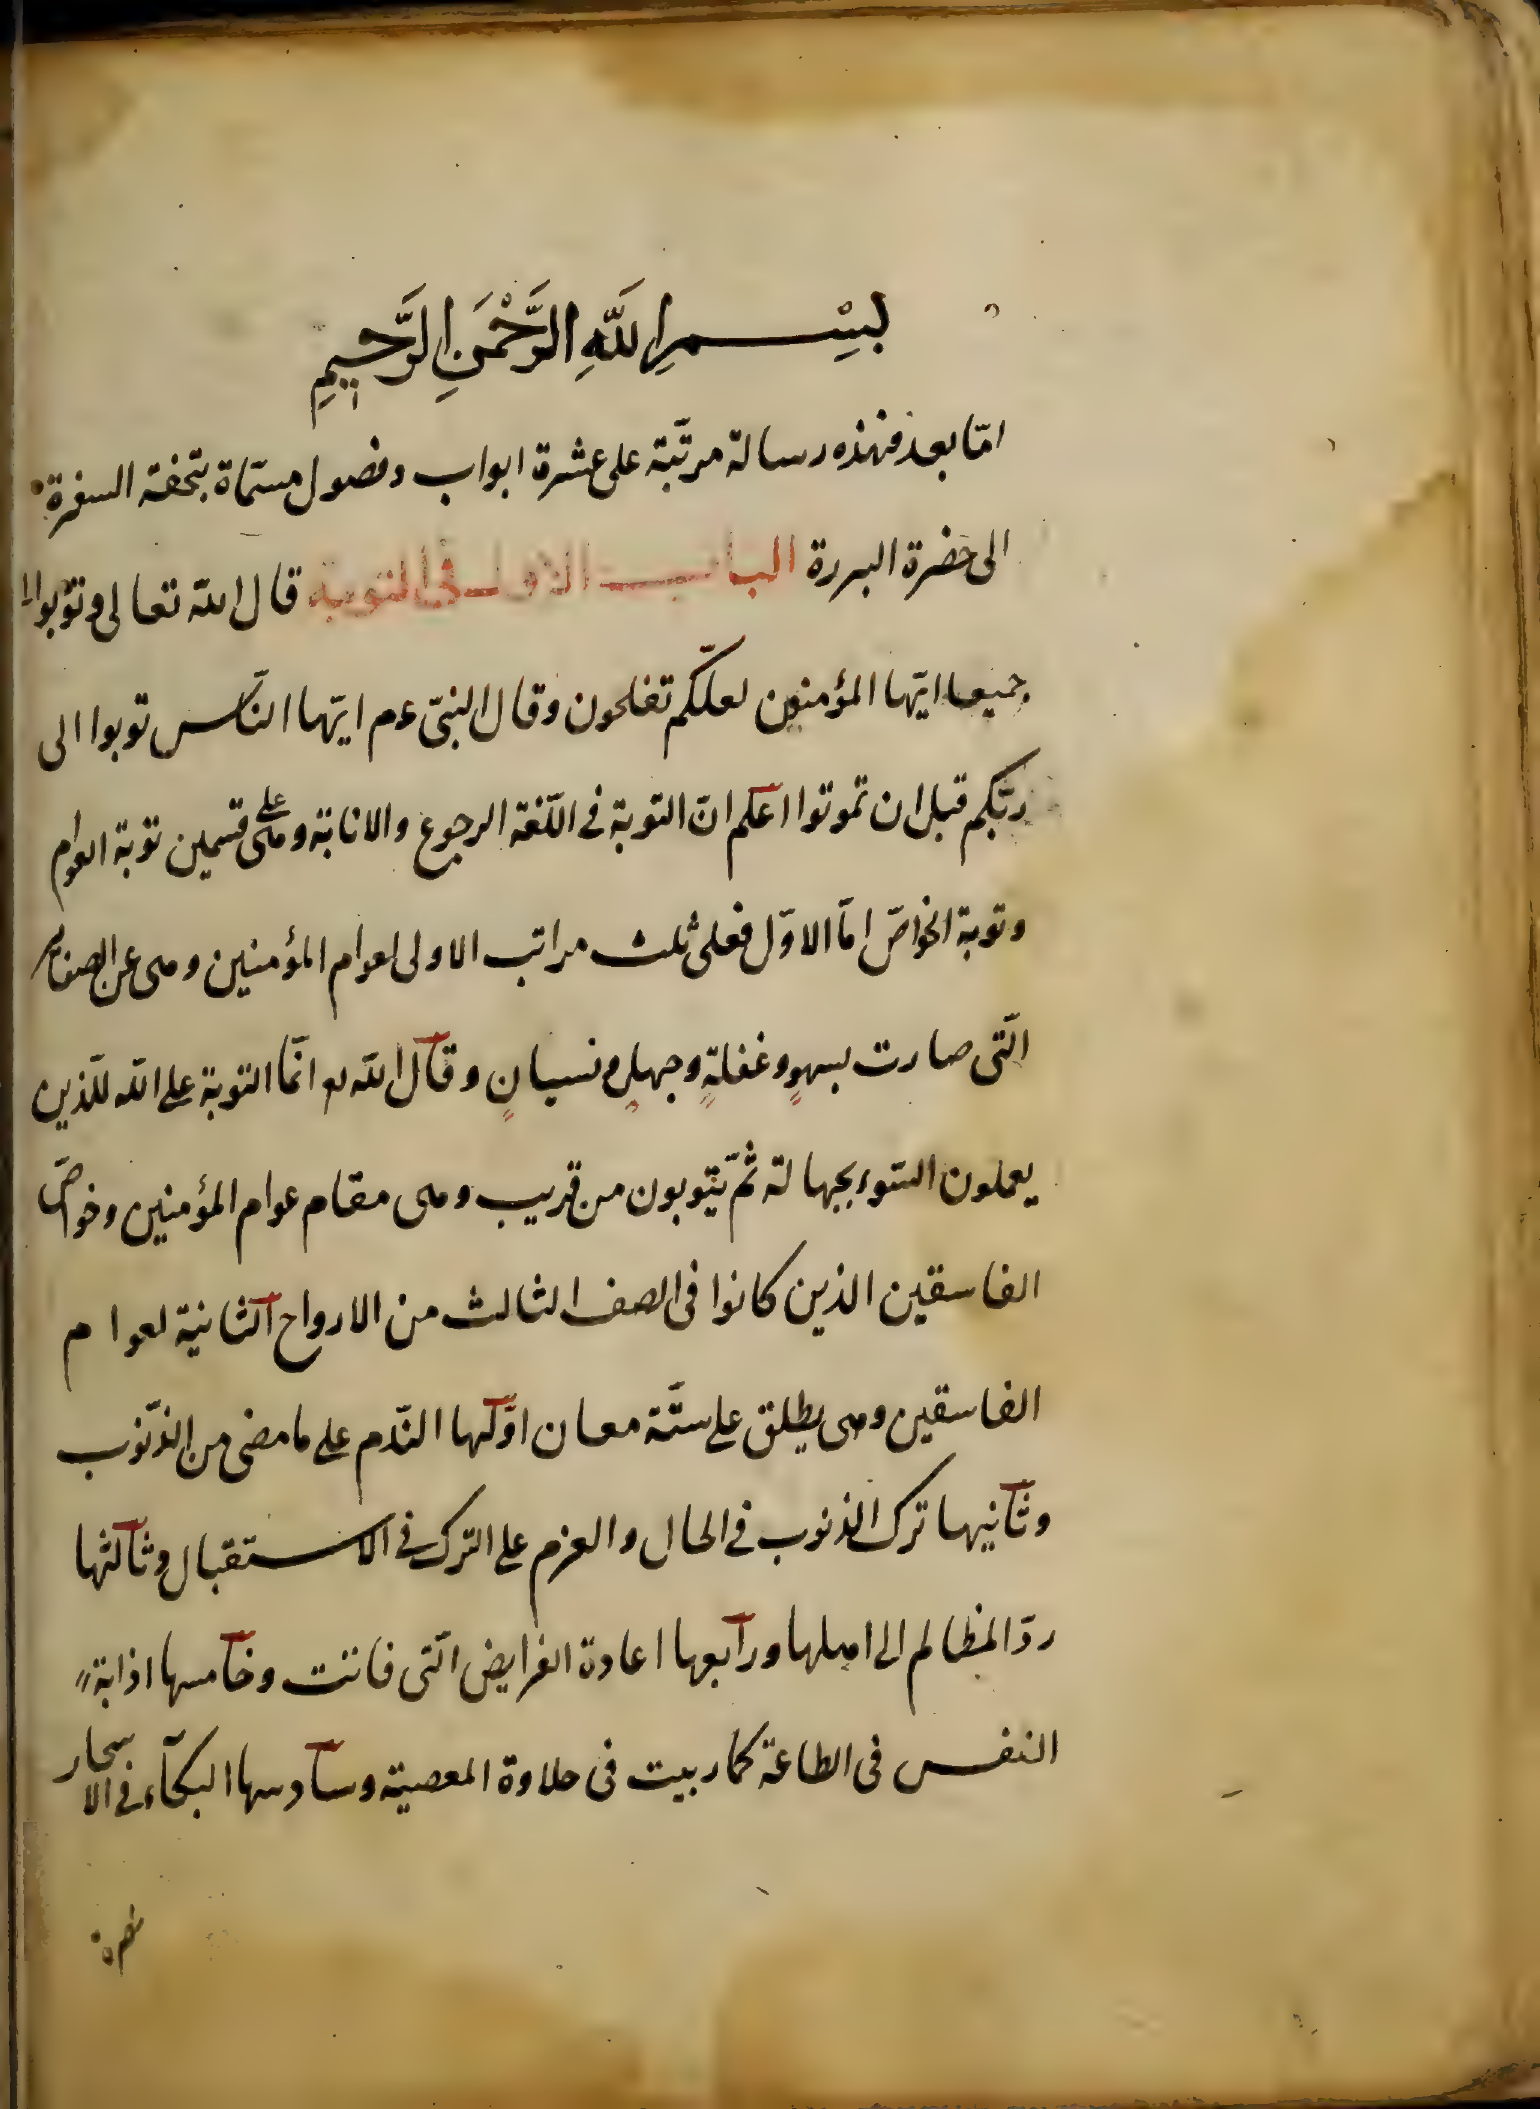 بِسْمِ اللَّهِ الرَّحْمَنِ الرَّحِيمِ
امّا بعد فهذه رسالة مرتّبة على عشرة ابواب وفصول مسمّاة بتحفة السفرة
الى حضرة البررة الباب الاول فى التوبة قال الله تعالى وتوبوا الى
جميعا ايّها المؤمنون لعلّكم تفلحون وقال النبىّ عم ايّها النّاس توبوا الى
ربّكم قبل ان تموتوا اعلم انّ التوبة فى اللّغة الرجوع والانابة وهى على قسمين توبة العوام
وتوبة الخواصّ امّا الاوّل فعلى ثلث مراتب الاولى لعوام المؤمنين وهى عن الصغاير
الّتى صارت بسهوٍ وغفلةٍ وجهلٍ ونسيانٍ وقال الله تع انّما التوبة على الله للّذين
يعملون السّوء بجهالة ثمّ يتوبون من قريب وهى مقام عوام المؤمنين وخواصّ
الفاسقين الذين كانوا فى الصف الثالث من الارواح الثانية لعوام
الفاسقين وهى يطلق على ستّة معان اوّلها النّدم على ما مضى من الذّنوب
وثانيها ترك الذنوب فى الحال والعزم على التّرك فى الاستقبال وثالثها
ردّ المظالم الى اهلها ورابعها اعادة الفرايض الّتى فاتت وخامسها اذابة
النفس فى الطاعة كما ربيت فى حلاوة المعصية وسادسها البكآء فى الاسحار